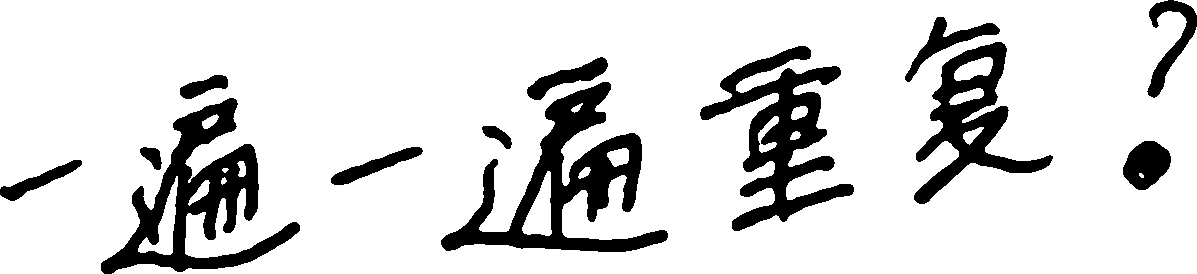 一遍一遍重复？